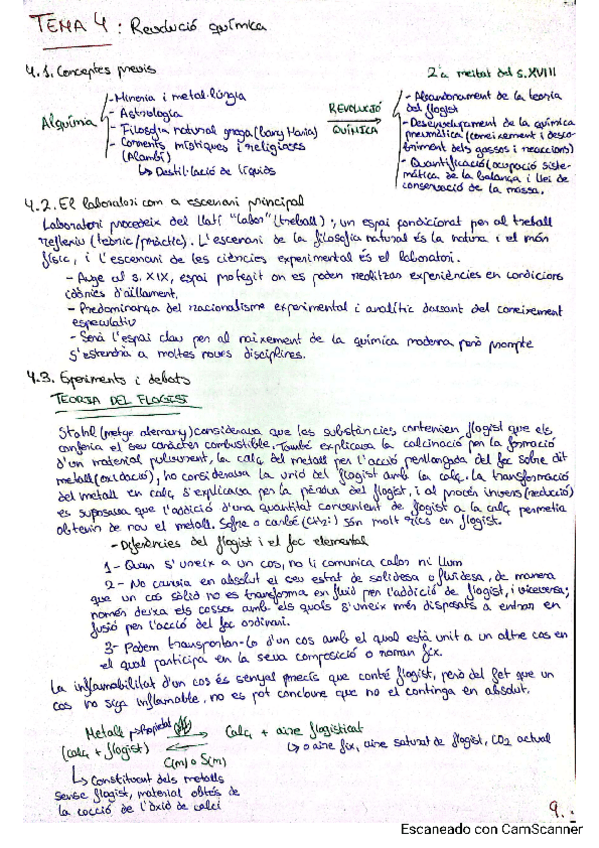 TEMA 4: Revolució química
4.1. Conceptes previs
2ª meitat del s. XVIII
Alquímia
- Mineria i metal·lúrgia
- Astrologia
- Filosofia natural grega (Bary Maria)
- Corrents místiques i religioses
(Alambí)
↳ Destil·lació de líquids
REVOLUCIÓ
QUÍMICA
- Abandonament de la teoria
del flogist
- Desenvolupament de la química
pneumàtica (coneixement i desco-
briment dels gassos i reaccions)
- Quantificació (ocupació siste-
màtica de la balança i llei de
conservació de la massa.
4.2. El laboratori com a escenari principal
Laboratori procedeix del llatí "labor" (treball); un espai condicionat per al treball
reflexiu (teòric/pràctic). L'escenari de la filosofia natural és la natura i el món
físic, i l'escenari de les ciències experimental és el laboratori.
- Auge al s. XIX, espai protegit on es poden realitzar experiències en condicions
idònies d'aïllament.
- Predominança del racionalisme experimental i analític davant del coneixement
especulatiu
- Serà l'espai clau per al naixement de la química moderna però prompte
s'estendrà a moltes noves disciplines.
4.3. Experiments i debats
TEORIA DEL FLOGIST
Stahl (metge alemany) considerava que les substàncies contenien flogist que els
conferia el seu caràcter combustible. També explicava la calcinació per la formació
d'un material pulverulent, la calç del metall per l'acció perllongada del foc sobre dit
metall (oxidació), ho considerava la unió del flogist amb la calç. La transformació
del metall en calç s'explicava per la pèrdua del flogist, i al procés invers (reducció)
es suposava que l'addició d'una quantitat convenient de flogist a la calç permetia
obtenir de nou el metall. Sofre o carbó són molt rics en flogist.
- Diferències del flogist i el foc elemental
1- Quan s'uneix a un cos, no li comunica calor ni llum
2- No canvia en absolut el seu estat de solidesa o fluïdesa, de manera
que un cos sòlid no es transforma en fluid per l'addició de flogist, i viceversa;
només deixa els cossos amb els quals s'uneix més disposats a entrar en
fusió per l'acció del foc ordinari.
3- Podem transportar-lo d'un cos amb el qual està unit a un altre cos en
el qual participa en la seva composició o roman fix.
La inflamabilitat d'un cos és senyal precís que conté flogist, però del fet que un
cos no siga inflamable, no es pot concloure que no el continga en absolut.
Metall
Calç + aire flogisticat
(calç + flogist)
↳ o aire fix, aire saturat de flogist, CO2 actual
C(m) o S(m)
↳ Constituent dels metalls
sense flogist, material obtés de
la cocció de l'òxid de calci
9.
Escaneado con CamScanner